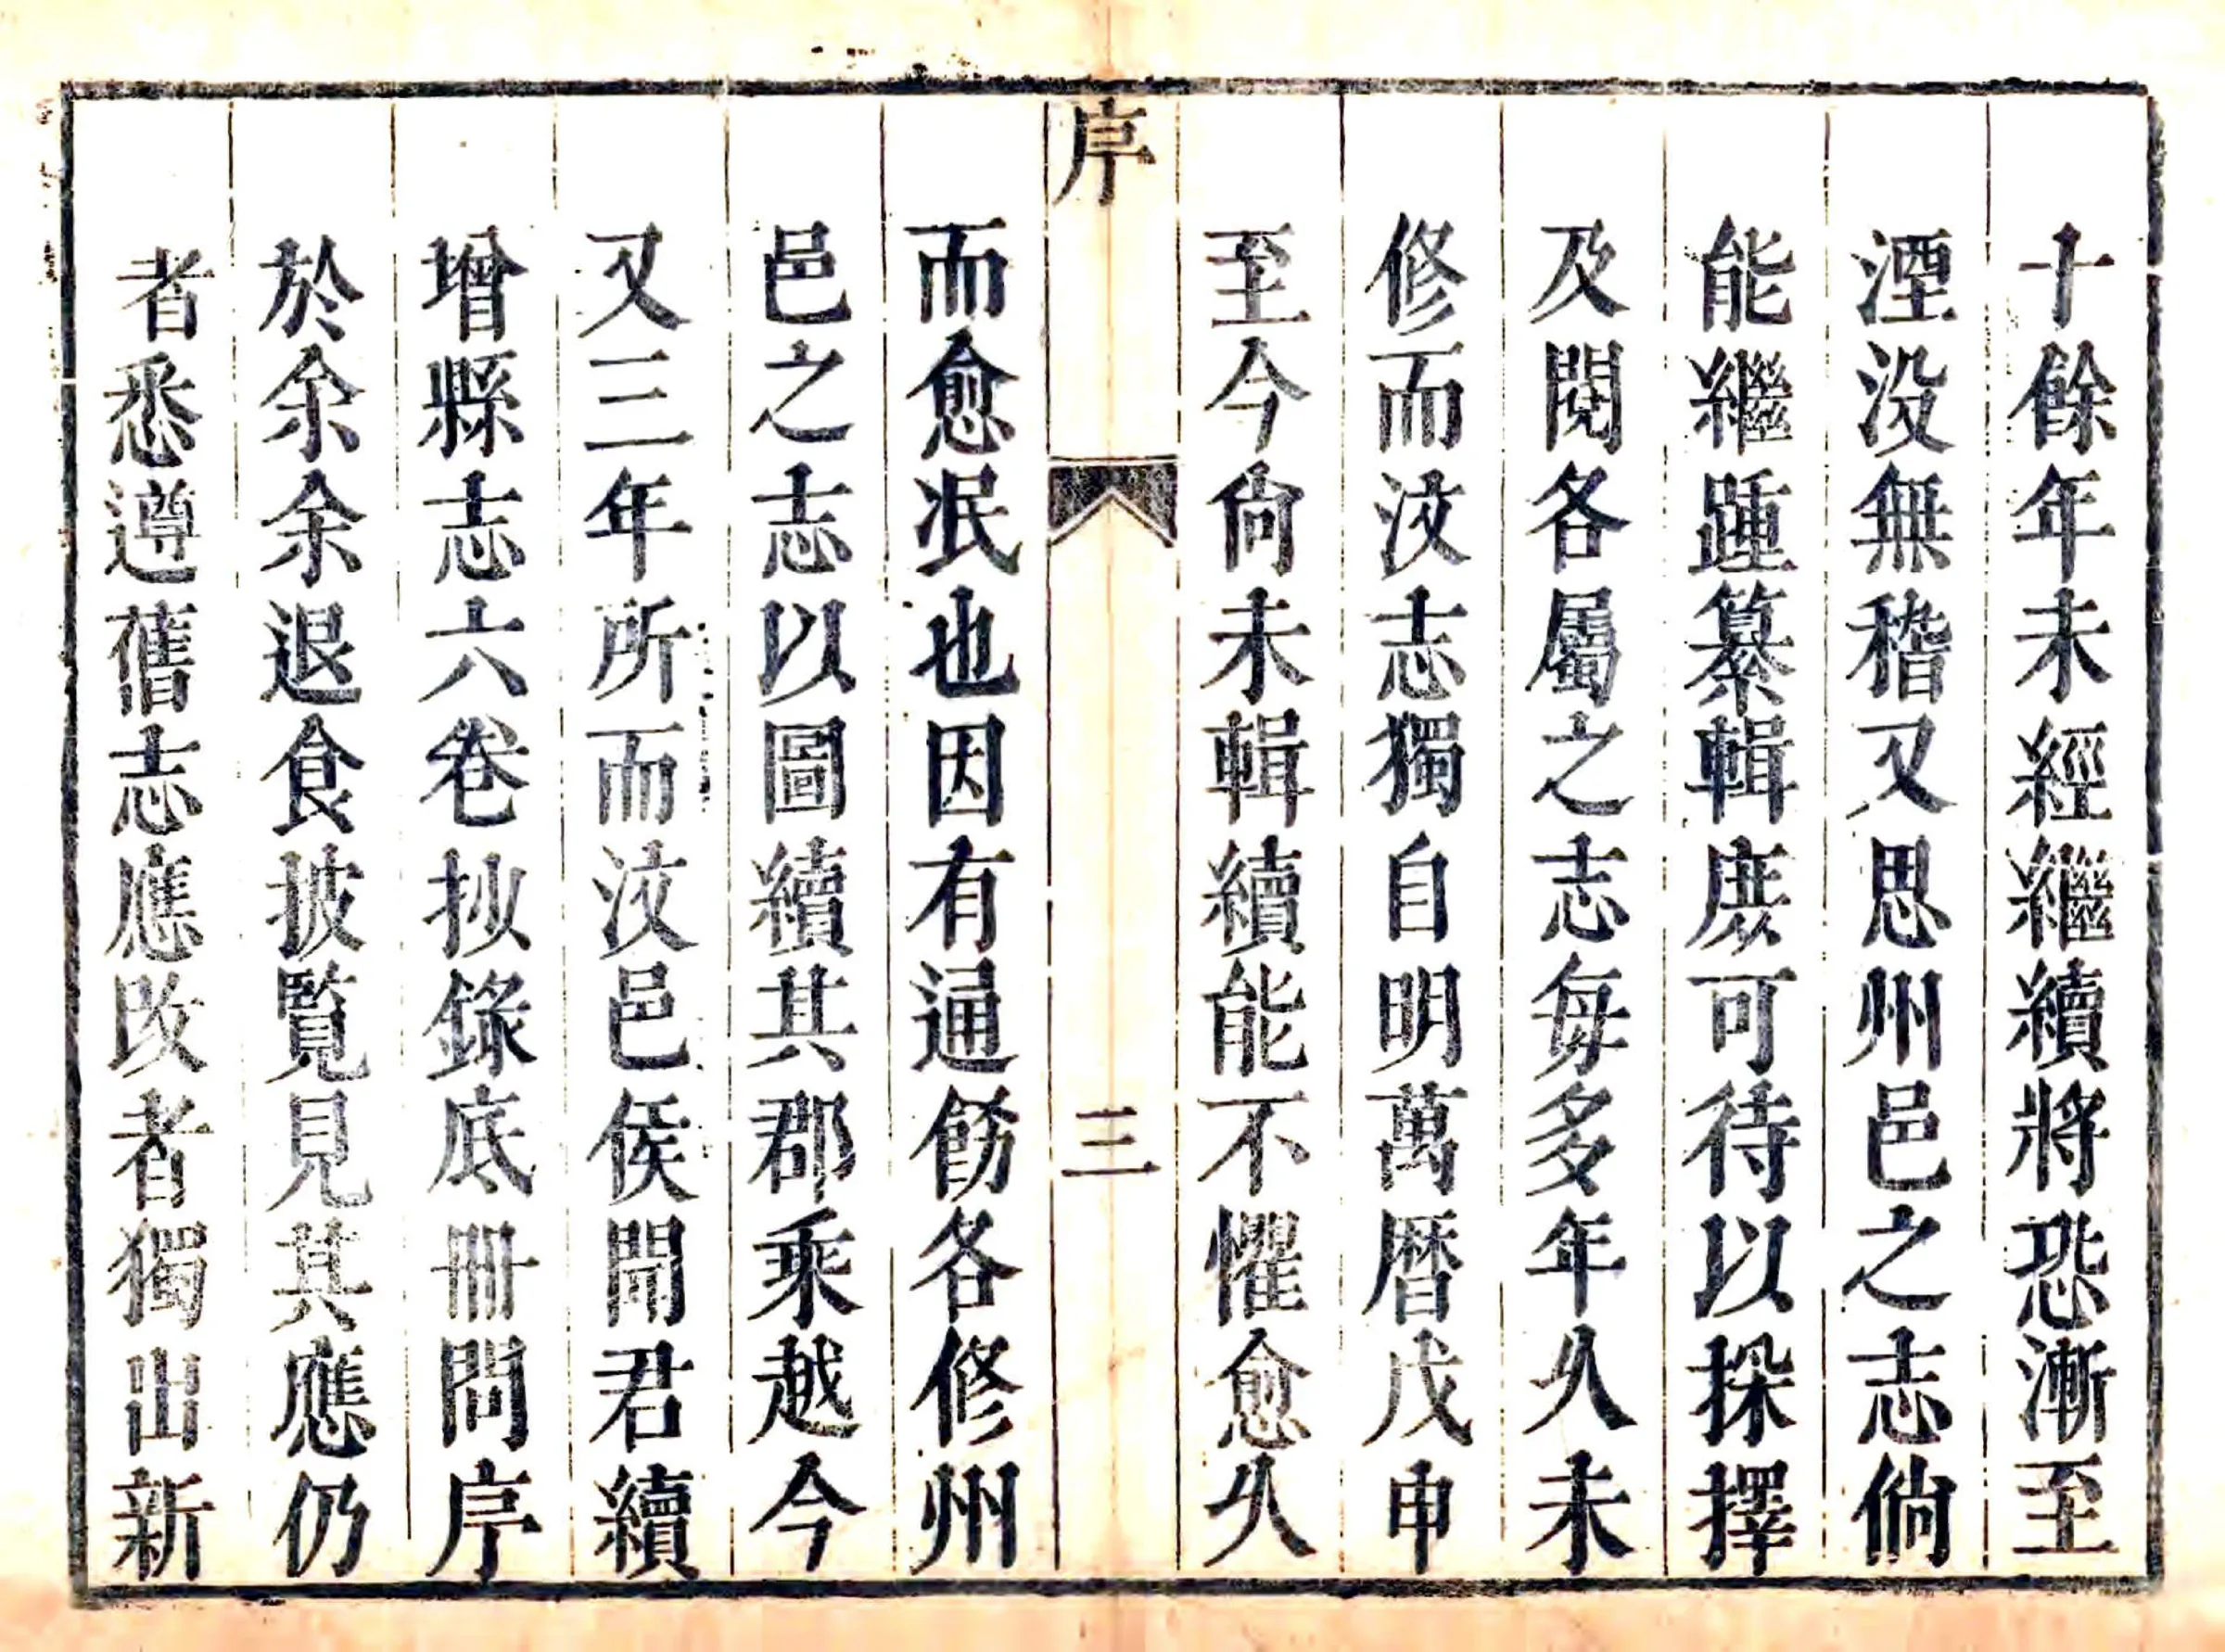 十餘年未經繼續將恐漸至
湮没無稽又思州邑之志倘
能繼踵纂輯庶可待以採擇
及閱各屬之志每多年久未
修而汶志獨自明萬曆戊申
至今尙未輯續能不懼愈久
序
三
而愈泯也因有通飭各修州
邑之志以圖續其郡乘越今
又三年所而汶邑侯聞君續
增縣志六卷抄錄底冊問序
於余余退食披覧見其應仍
者悉遵舊志應改者獨出新